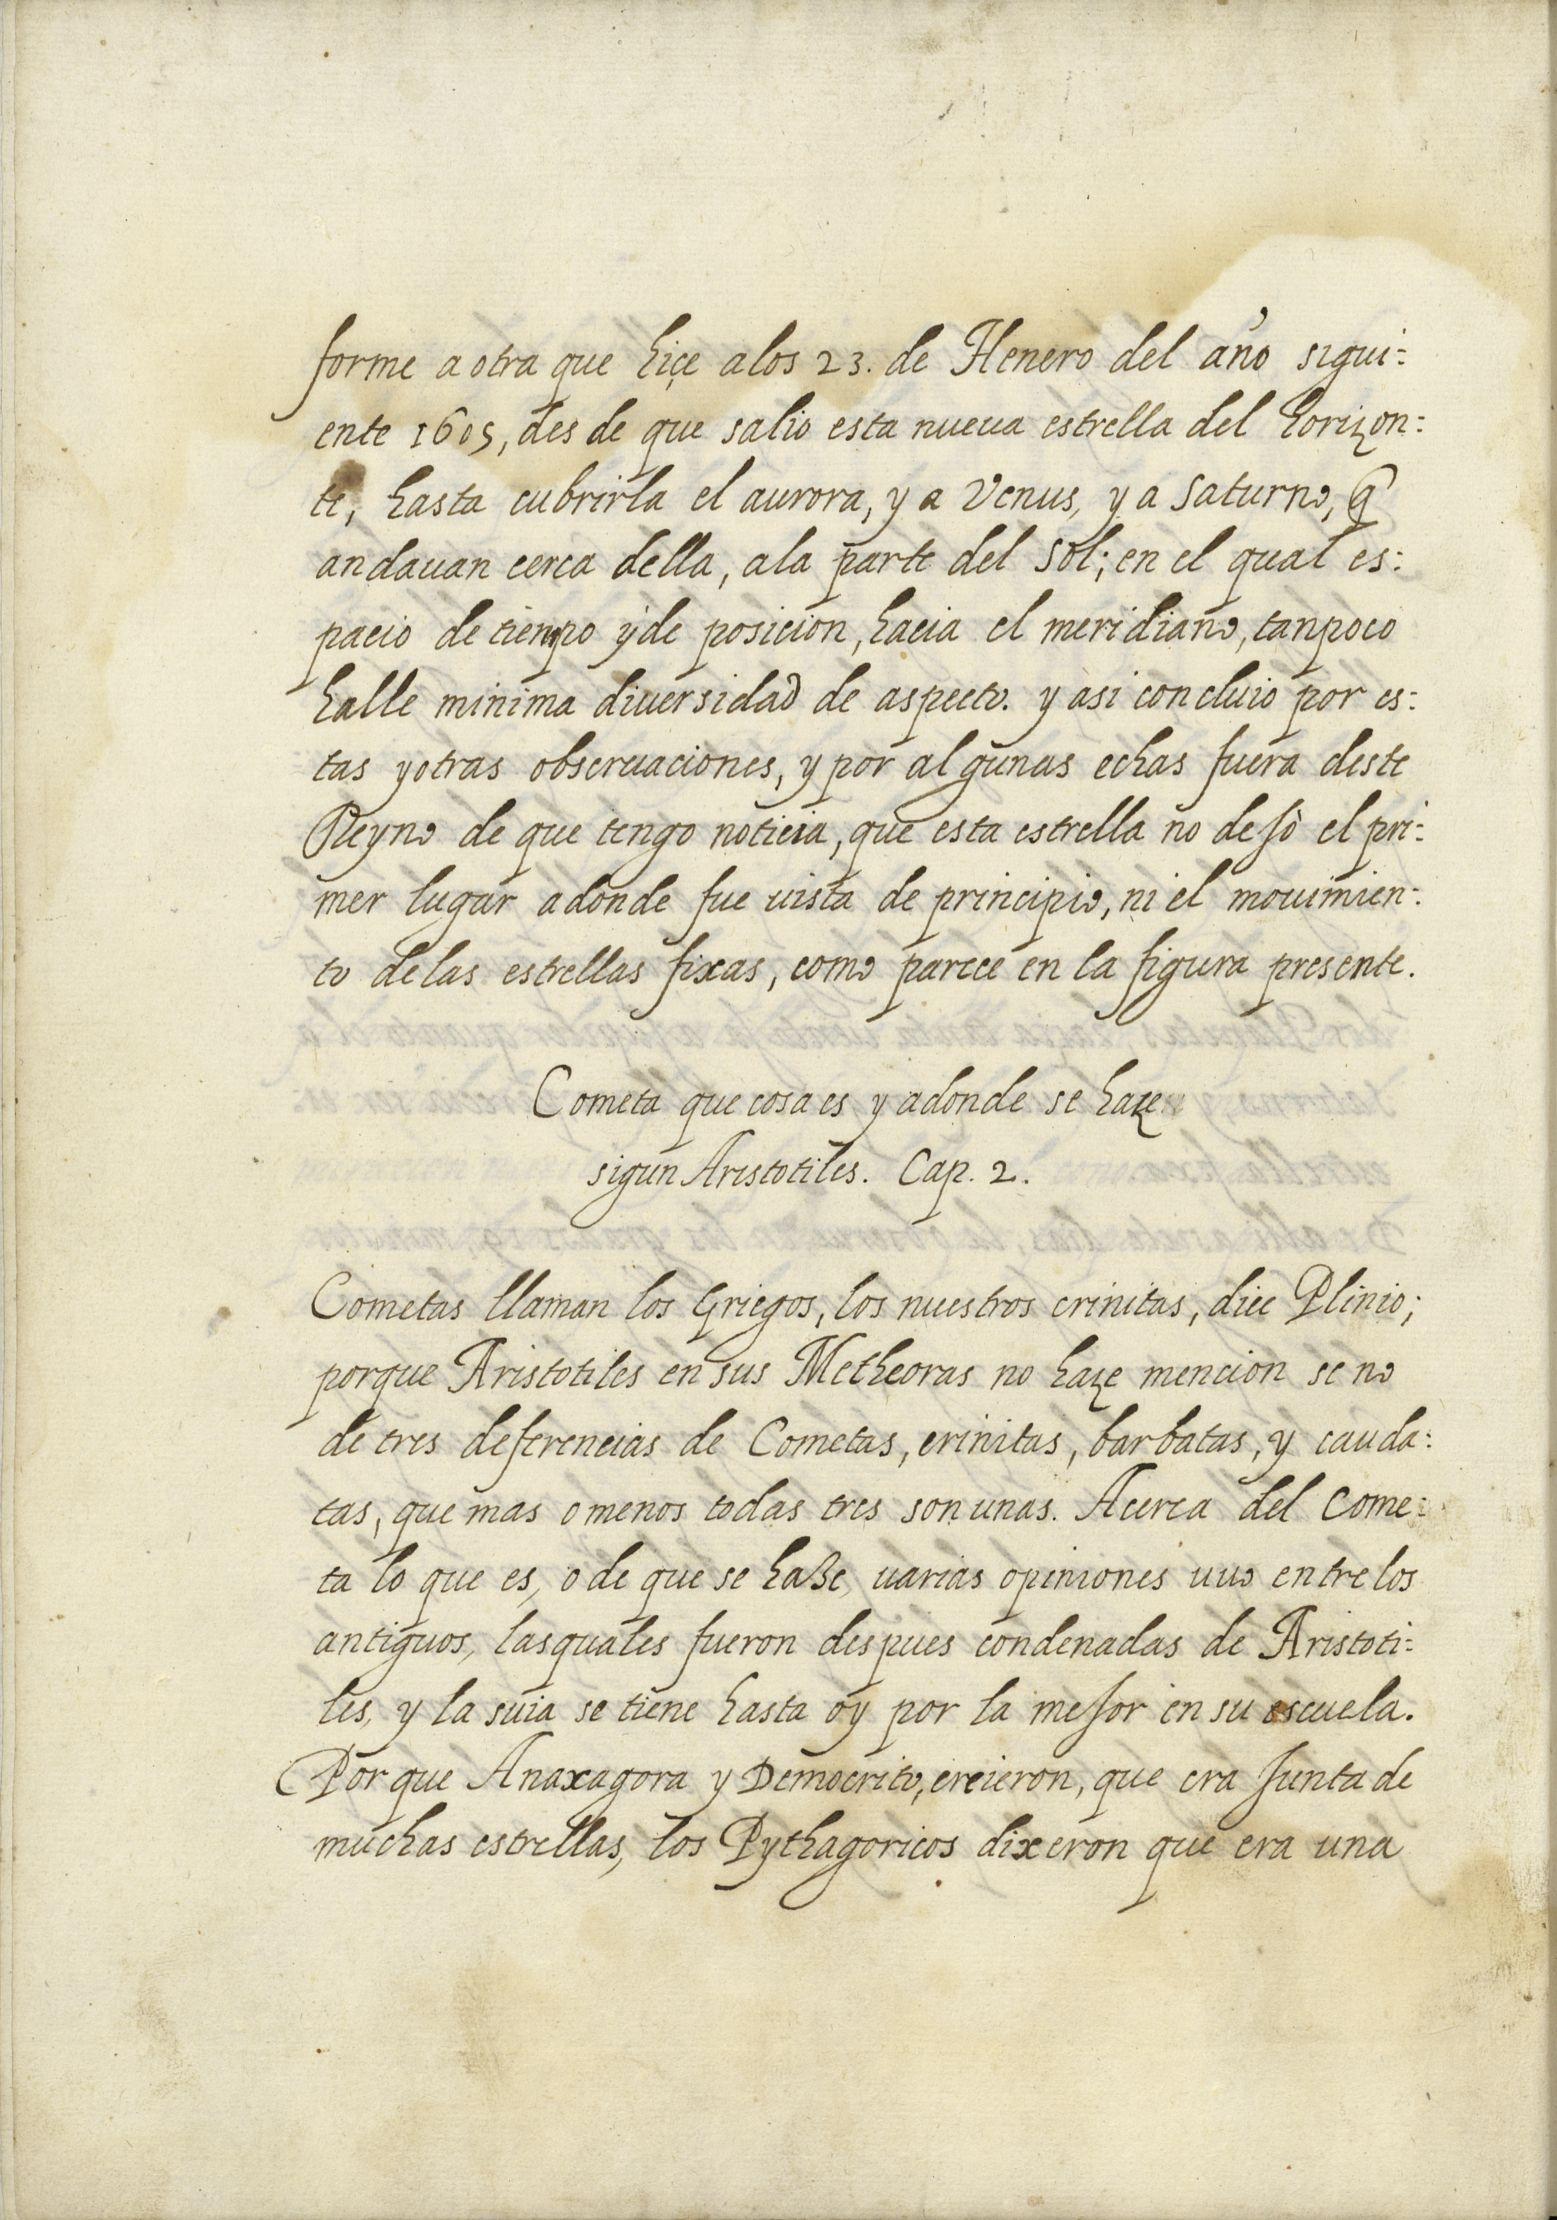 forme a otra que hiçe a los 23. de Henero del año sigui=
ente 1605, des de que salio esta nueua estrella del horizon=
te, hasta cubrirla el aurora, y a Venus, y a Saturno, q̃
andauan cerca della, ala parte del Sol; en el qual es=
pacio de tienpo y de posicion, hacia el meridiano, tanpoco
halle minima diuersidad de aspecto. y asi concluio por es=
tas y otras obseruaciones, y por algunas echas fuera deste
Reyno de que tengo noticia, que esta estrella no dejò el pri=
mer lugar adonde fue uista de principio, ni el mouimien=
to delas estrellas fixas, como parece en la figura presente.
Cometa que cosa es y adonde se hazen
sigun Aristotiles. Cap. 2.
Cometas llaman los Griegos, los nuestros crinitas, dice Plinio;
porque Aristotiles en sus Metheoras no haze mencion se no
de tres deferencias de Cometas, crinitas, barbatas, y cauda=
tas, que mas o menos todas tres son unas. Acerca del Come=
ta lo que es, o de que se haze, uarias opiniones uuo entre los
antiguos, lasquales fueron despues condenadas de Aristoti=
les, y la suia se tiene hasta oy por la mejor en su escuela.
Porque Anaxagora y Democrito, creieron, que era junta de
muchas estrellas, los Pythagoricos dixeron que era una